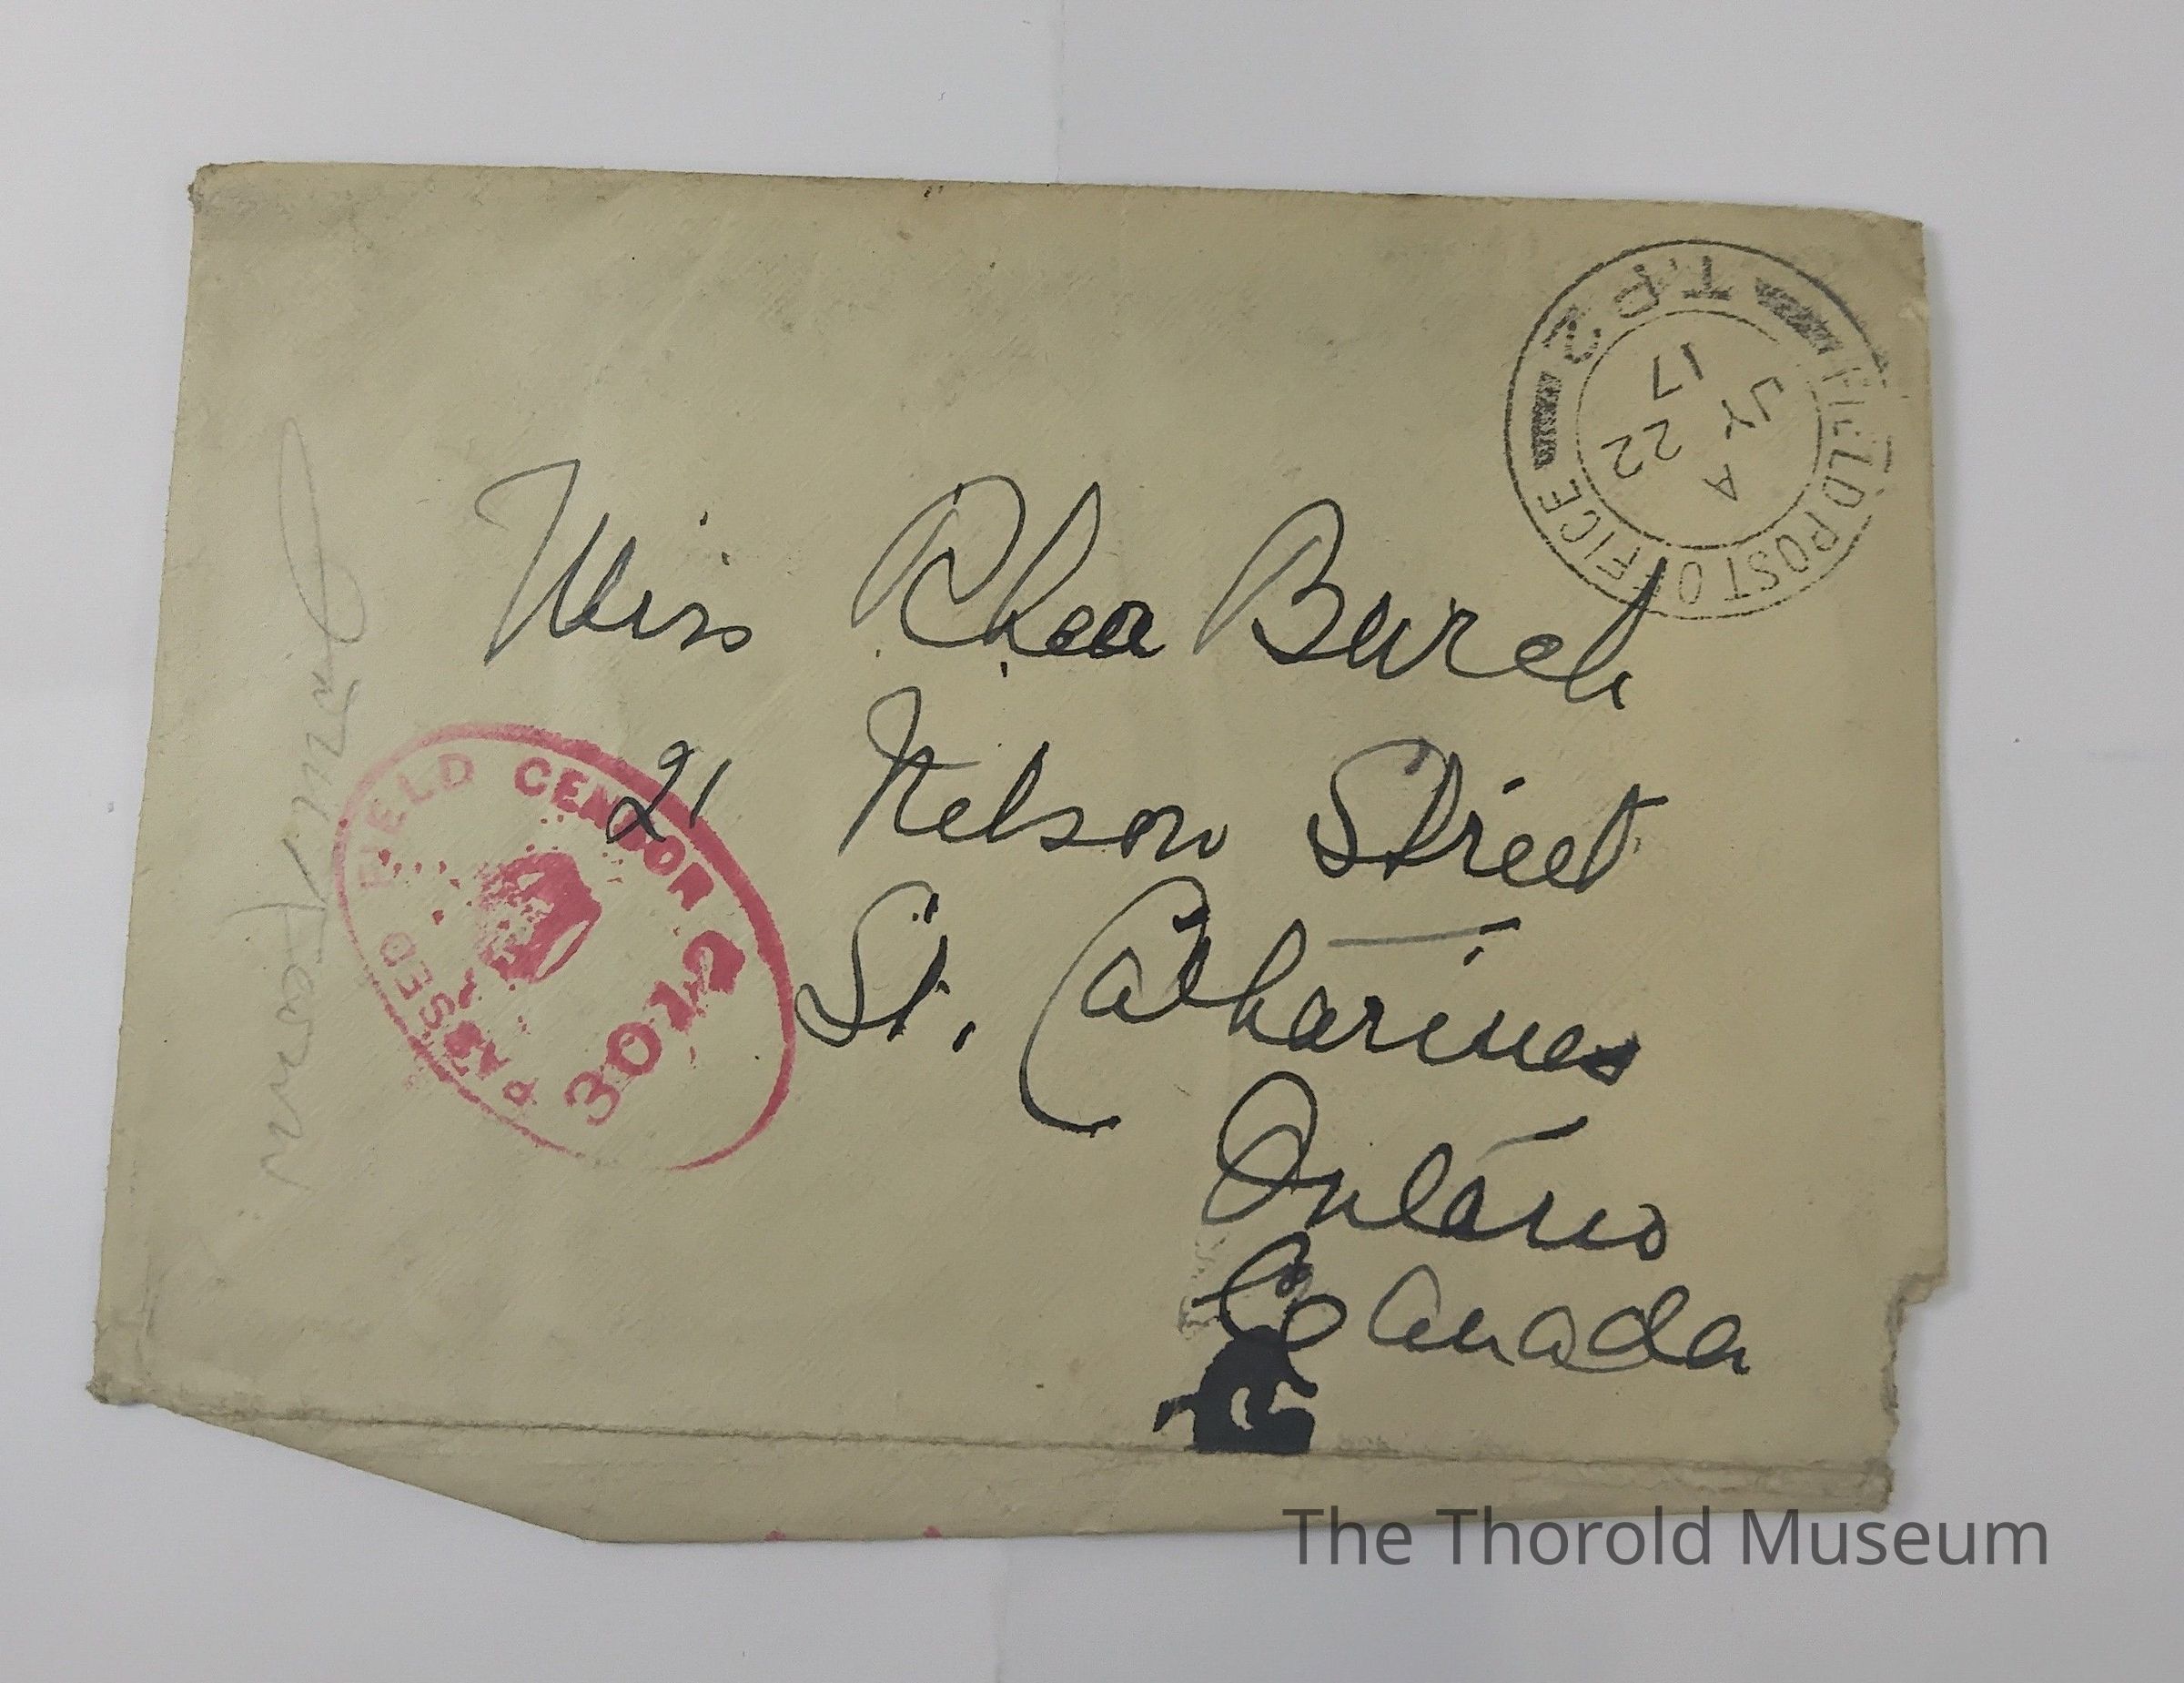 Miss Rhea Burch
21 Nelson Street
St. Catharines
Ontario
Canada
FIELD POST OFFICE
T.P.2
A
JY 22
17
PASSED FIELD CENSOR
The Thorold Museum